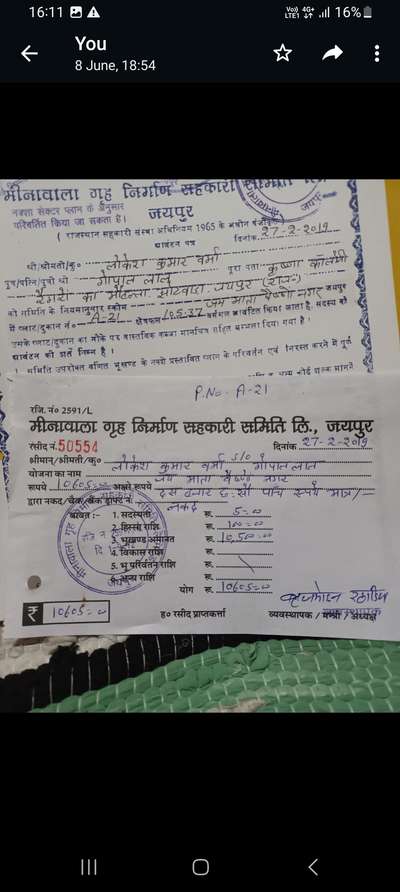 16:11
Vo)) 4G+ LTE1 16%
You
8 June, 18:54
मीनावाला गृह निर्माण सहकारी समिति लि.
नक्शा सेक्टर प्लान के अनुसार
परिवर्तित किया जा सकता है।
जयपुर
( राजस्थान सहकारी संस्था अधिनियम 1965 के अधीन
आवंटन पत्र दिनांक 27-2-2019
श्री/श्रीमती/कु० लोकेश कुमार वर्मा
पुत्र/पत्नि/पुत्री श्री गोपाल लाल पूरा पता कृष्णा कॉलोनी
रैगरों का मोहल्ला झोटवाड़ा जयपुर (राज०)
को समिति के नियमानुसार स्कीम जय माता वैष्णो नगर जयपुर
में प्लाट/दुकान नं० A-21 क्षेत्रफल 105.37 वर्गगज आवंटित किया जाता है। सदस्य को
उसके प्लाट/दुकान का मौके पर वास्तविक कब्जा मानचित्र सहित सम्भला दिया गया है।
आवंटन की शर्तें निम्न है।
समिति उपरोक्त वर्णित भूखण्ड के नक्शे प्रस्तावित प्लान के परिवर्तन एवं निरस्त करने में पूर्ण
P.No. A-21
रजि. नं० 2591/L
मीनावाला गृह निर्माण सहकारी समिति लि., जयपुर
रसीद नं. 50554 दिनांक 27-2-2019
श्रीमान्/श्रीमती/कु० लोकेश कुमार वर्मा S/O गोपाल लाल
योजना का नाम जय माता वैष्णो नगर
रूपये 10605=0 अक्षरे रूपये दस हजार छः सौ पाँच रुपये मात्र/=
द्वारा नकद/चैक/बैंक ड्राफ्ट नं. नकद
बाबत :- 1. सदस्यता रू. 5=0
2. हिस्सा राशि रू. 100=0
3. भूखण्ड अमानत रू. 10,500=0
4. विकास राशि रू.
5. भू परिवर्तन राशि रू.
6. अन्य राशि रू.
योग रू. 10605=0
₹ 10605=0
ह० रसीद प्राप्तकर्ता व्यवस्थापक / मन्त्री / अध्यक्ष